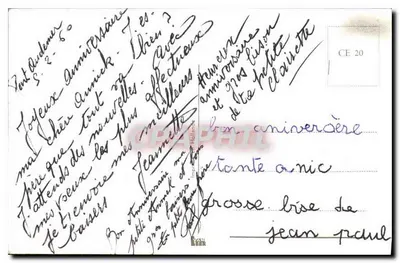 Pont Audemer
5. 2. 60
Joyeux anniversaire
ma chère Annick. J'es-
père que tout va bien ?
J'attends des nouvelles avec
mes voeux les plus affectueux
Je t'envoie mes meilleurs
baisers
Jeannette
Bon Anniversaire ma
petite Annick et bon
gros baisers
heureux
anniversaire
et gros bison
de ta petite
Claudette
CE 20
bon aniversère
tante a nic
grosse bise de
jean paul
CPARAMA